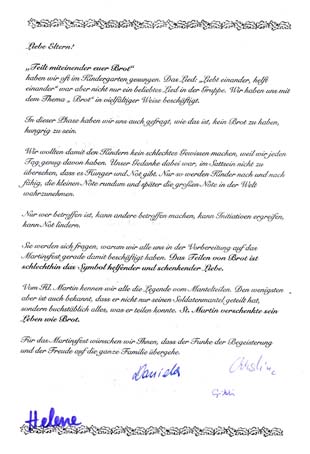 Liebe Eltern!
„Teilt miteinender euer Brot"
haben wir oft im Kindergarten gesungen. Das Lied: „Liebt einander, helft
einander" war aber nicht nur ein beliebtes Lied in der Gruppe. Wir haben uns mit
dem Thema „ Brot" in vielfältiger Weise beschäftigt.
In dieser Phase haben wir uns auch gefragt, wie das ist, kein Brot zu haben,
hungrig zu sein.
Wir wollten damit den Kindern kein schlechtes Gewissen machen, weil wir jeden
Tag genug davon haben. Unser Gedanke dabei war, im Sattsein nicht zu
übersehen, dass es Hunger und Not gibt. Nur so werden Kinder nach und nach
fähig, die kleinen Nöte rundum und später die großen Nöte in der Welt
wahrzunehmen.
Nur wer betroffen ist, kann andere betroffen machen, kann Initiativen ergreifen,
kann Not lindern.
Sie werden sich fragen, warum wir alle uns in der Vorbereitung auf das
Martinsfest gerade damit beschäftigt haben. Das Teilen von Brot ist
schlechthin das Symbol helfender und schenkender Liebe.
Vom Hl. Martin kennen wir alle die Legende vom Mantelteilen. Den wenigsten
aber ist auch bekannt, dass er nicht nur seinen Soldatenmantel geteilt hat,
sondern buchstäblich alles, was er teilen konnte. St. Martin verschenkte sein
Leben wie Brot.
Für das Martinsfest wünschen wir Ihnen, dass der Funke der Begeisterung
und der Freude auf die ganze Familie übergehe.
Daniela
Helene